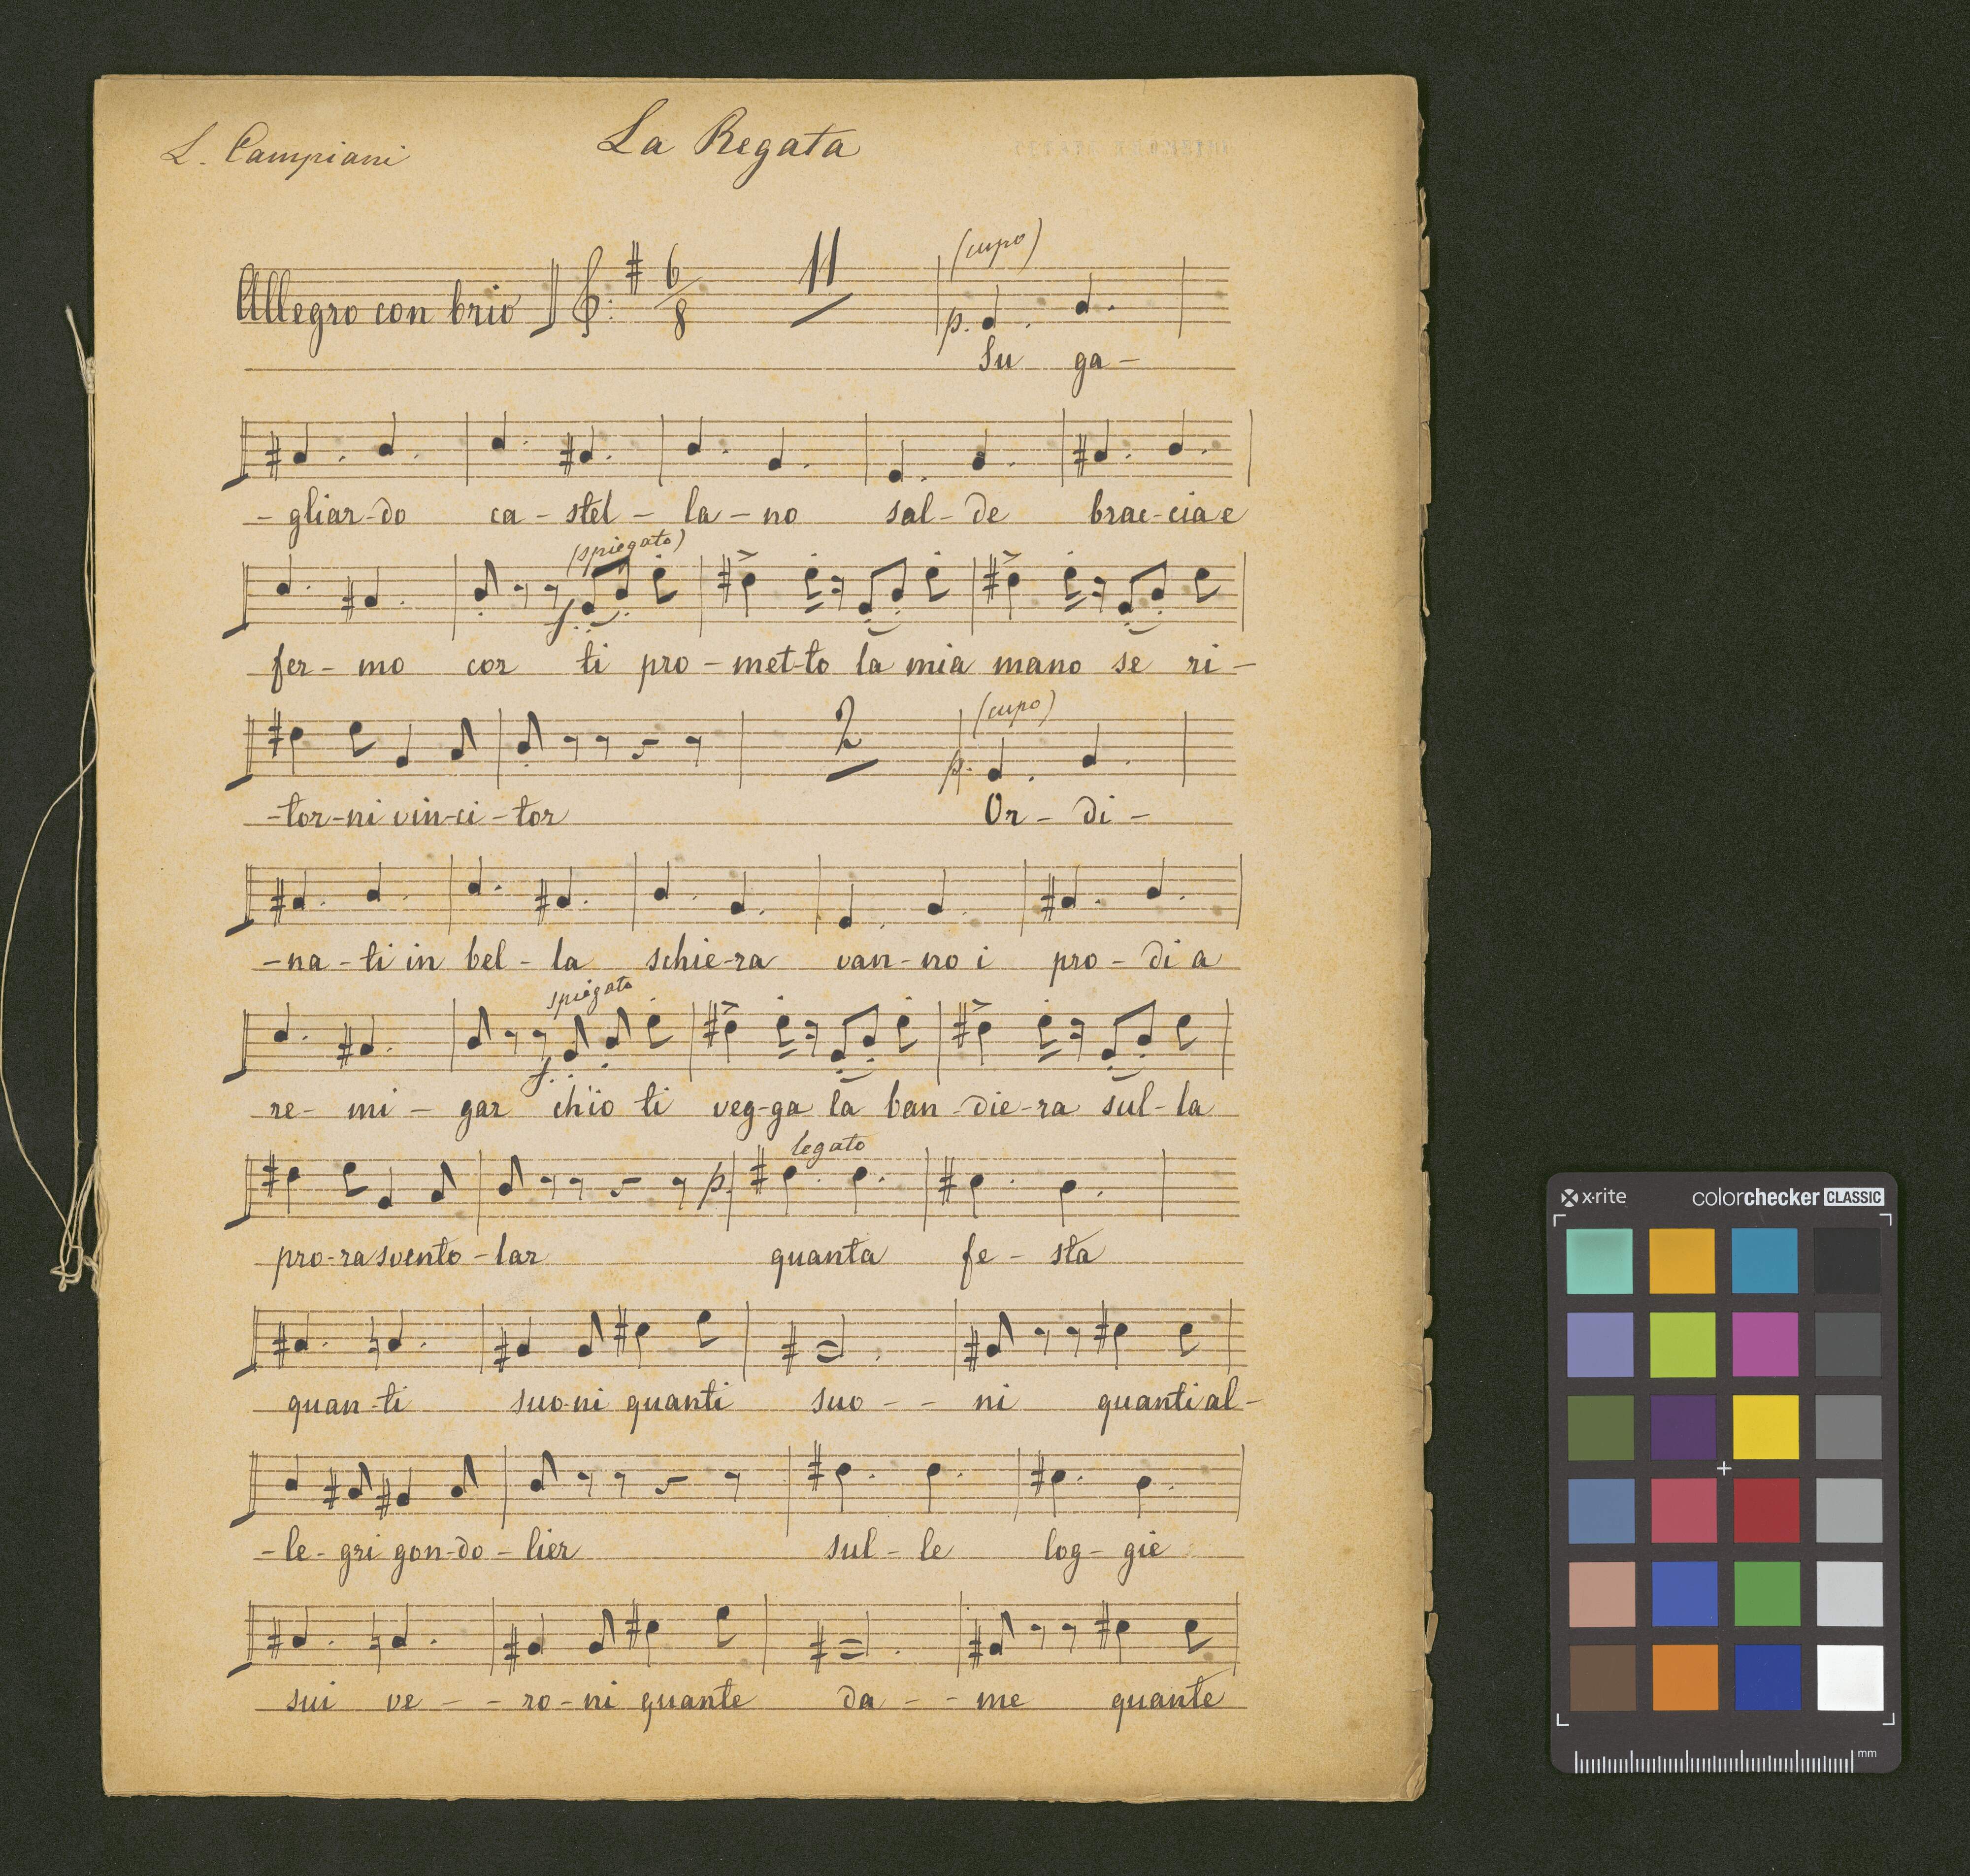 L. Campiani
La Regata
Allegro con brio 6/8 11 (cupo) p.
Su ga-
-gliar-do ca-stel-la-no sal-de brac-cia e
(spiegato) f.
fer-mo cor ti pro-met-to la mia mano se ri-
2 (cupo) p.
-tor-ni vin-ci-tor Or-di-
-na-ti in bel-la schie-ra van-no i pro-di a
spiegato f.
re-mi-gar ch'io ti veg-ga la ban-die-ra sul-la
p. legato
pro-ra svento-lar quanta fe-sta
quan-ti suo-ni quanti suo-- ni quanti al-
-le-gri gon-do-lier sul-le log-gie
sui ve--ro-ni quante da--me quante
x-rite colorchecker CLASSIC
mm